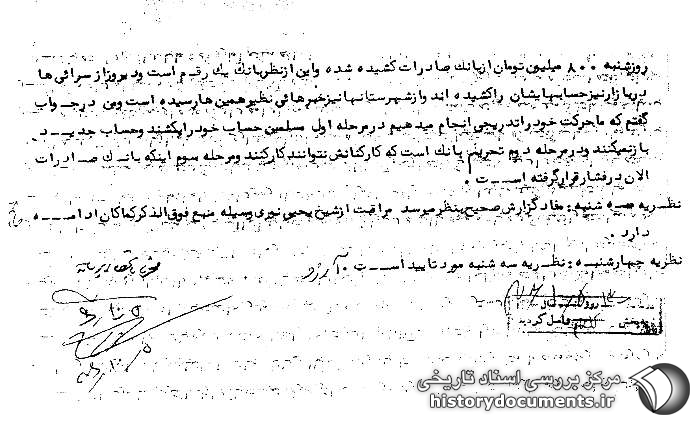 روزشنبه ۸۰۰ میلیون تومان از بانک صادرات کشیده شده و این از نظر بانک یک رقم است و دیروز از سرائی ها
در بازار نیز حسابهایشان را کشیده اند و از شهرستانها نیز خبرهائی نظیر همین ها رسیده است و من در جواب
گفتم که ما حرکت خود را تدریجی انجام میدهیم در مرحله اول مسلمین حساب خود را بکشند و حساب جدید
باز نمیکنند و در مرحله دوم تحریم بانک است که کارکنانش نتوانند کار کنند و مرحله سوم اینکه بانک صادرات
الان در فشار قرار گرفته است .
نظریه سه شنبه : مفاد گزارش صحیح بنظر میرسد مراقبت از شیخ یحیی نوری وسیله منبع فوق الذکر کماکان ادامه
دارد .
نظریه چهارشنبه : نظریه سه شنبه مورد تایید است .
بخش حاصل گردید
مرکز بررسی اسناد تاریخی
historydocuments.ir